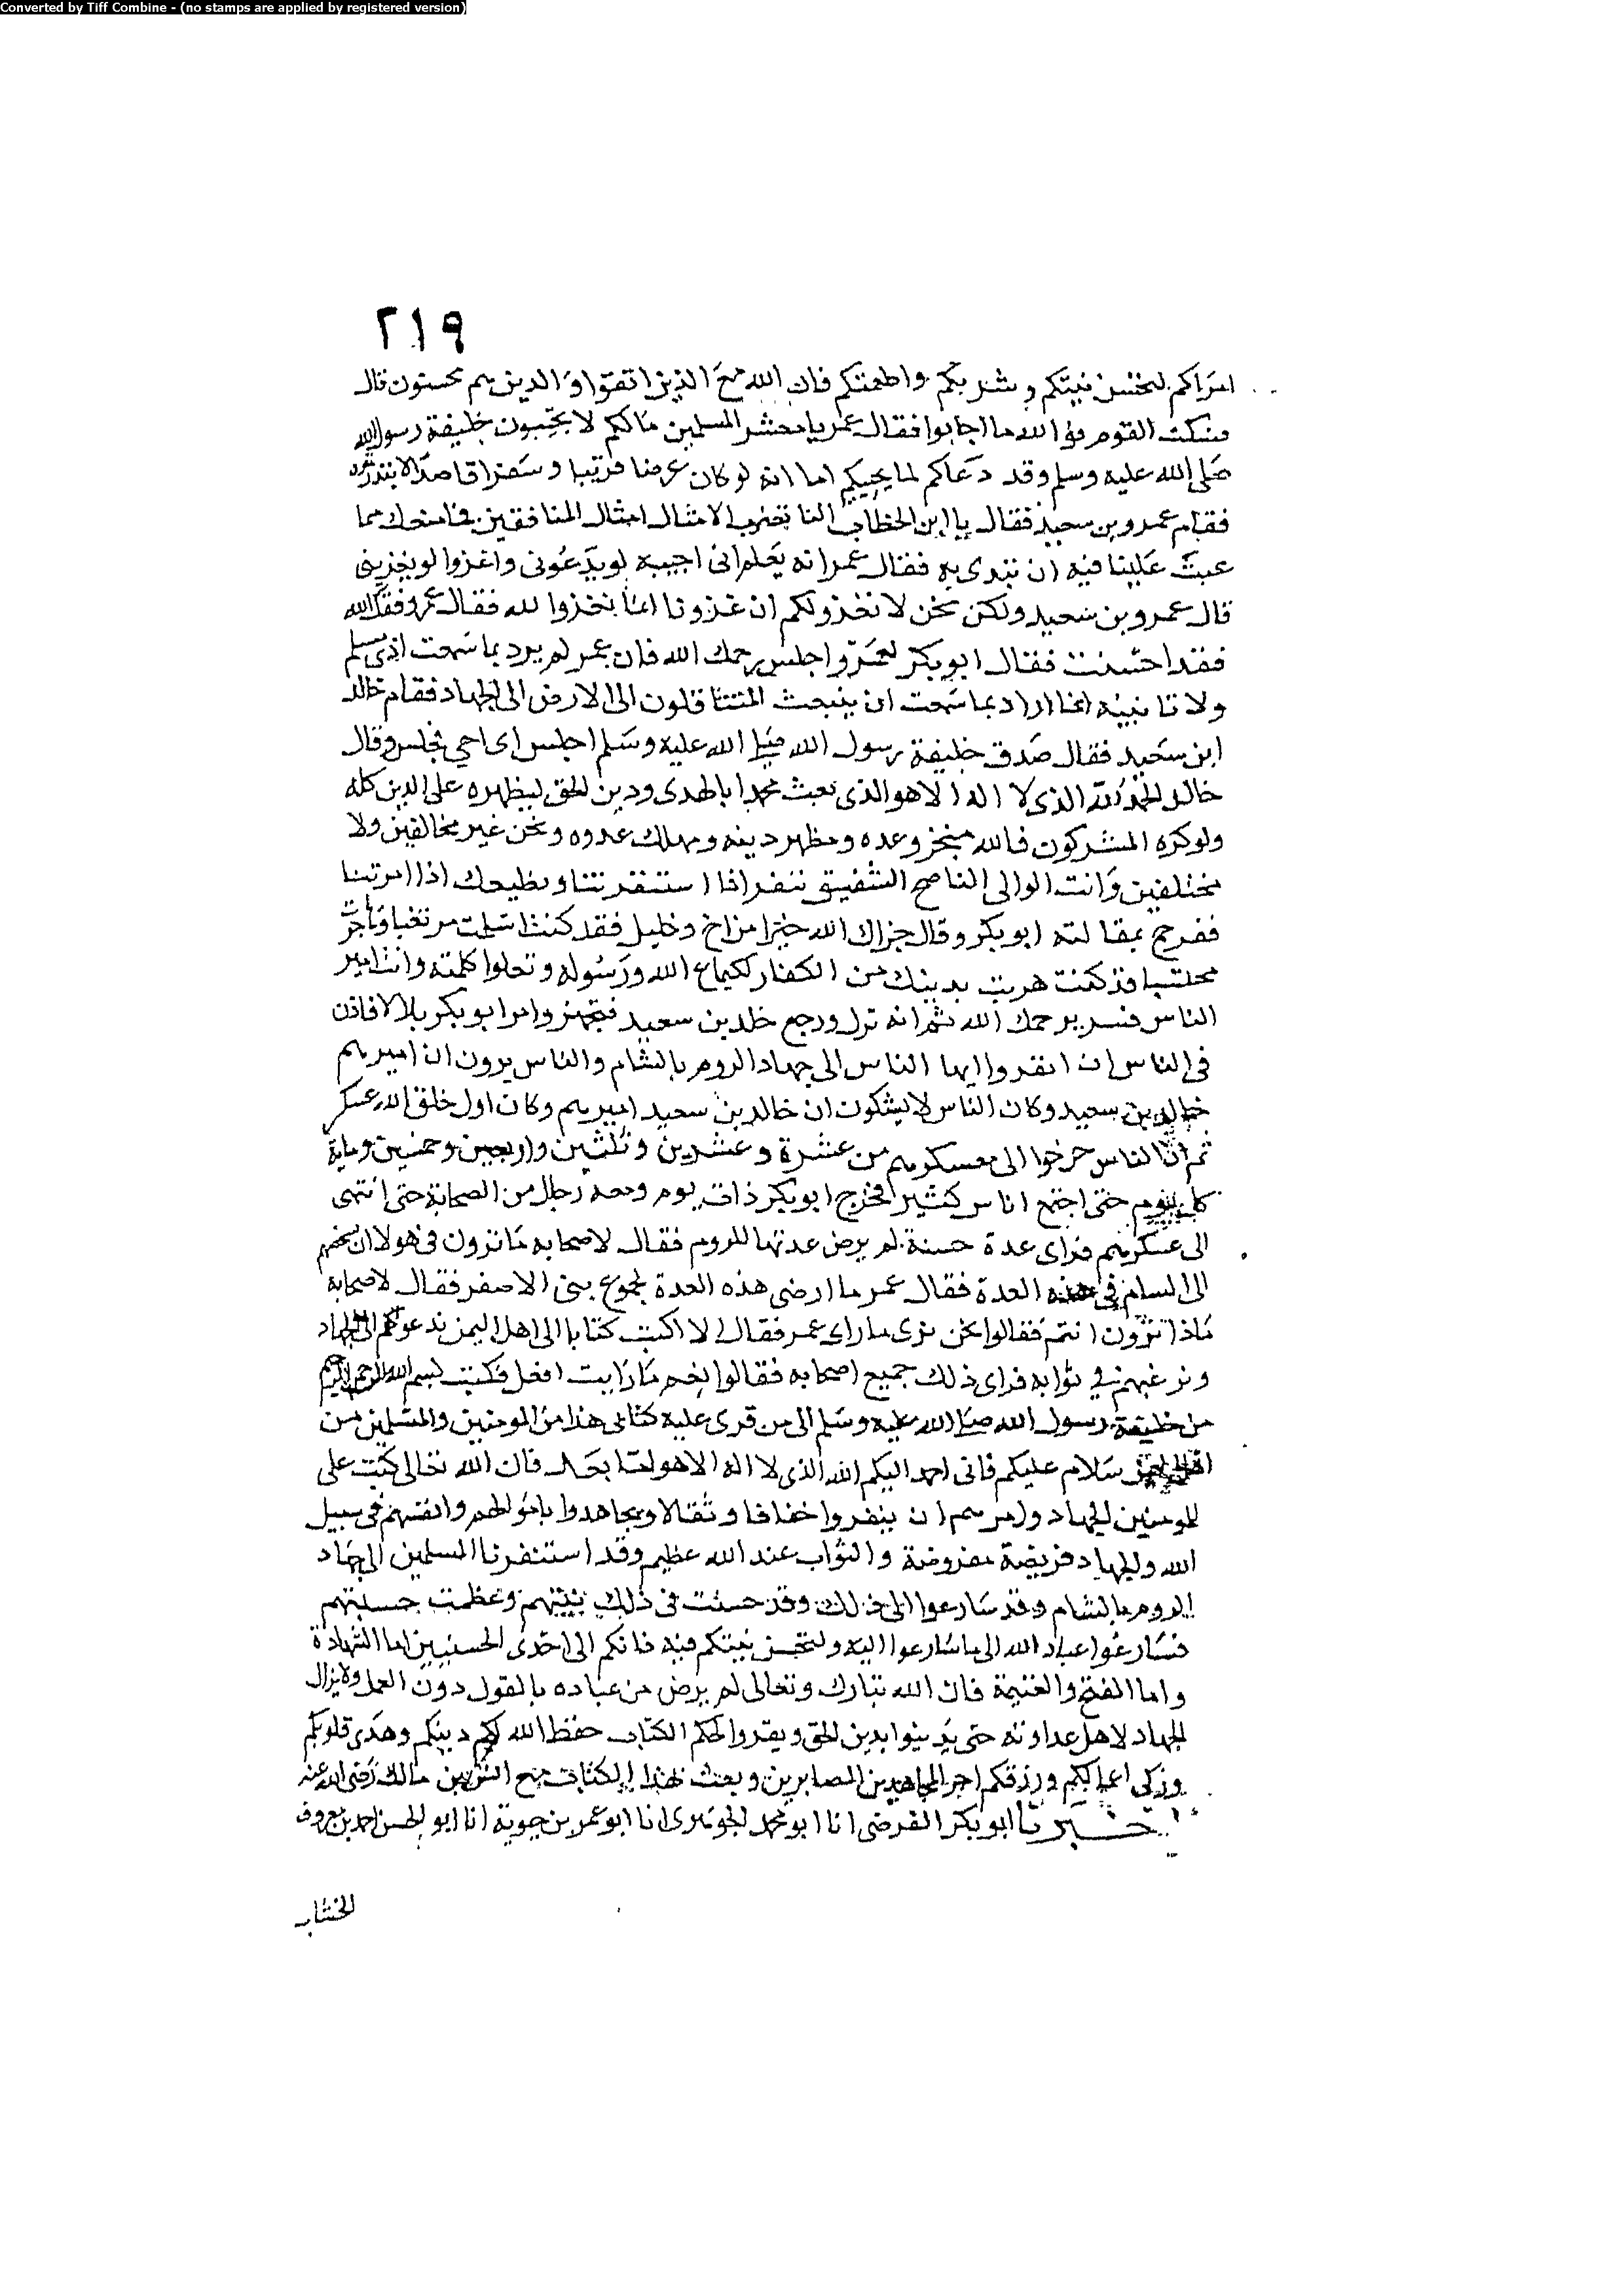 Converted by Tiff Combine - (no stamps are applied by registered version)
٢١٩
امراكم لتحسن نيتكم وشربكم واطعمتكم فان الله مع الذين اتقوا والذين هم محسنون قال
فسكت القوم فوالله ما اجابوا فقال عمر يا معشر المسلمين مالكم لا تجيبون خليفة رسول الله
صلى الله عليه وسلم وقد دعاكم لما يحييكم اما انه لو كان عرضا قريبا وسفرا قاصدا لابتدرتموه
فقام عمرو بن سعيد فقال يا ابن الخطاب النا تضرب الامثال امثال المنافقين فما منعك مما
عبت علينا فيه ان تبتدى به فقال عمر انه يعلم انى اجيبه لو يدعونى واغزوا لو يغزينى
قال عمرو بن سعيد ولكن نحن لا نغزو لكم ان غزونا انما نغزوا لله فقال عمر وفقك الله
فقد احسنت فقال ابو بكر لعمرو اجلس رحمك الله فان عمر لم يرد بما سمعت اذى مسلم
ولا تانيبه انما اراد بما سمعت ان ينبعث المتثاقلون الى الارض الى الجهاد فقام خالد
ابن سعيد فقال صدق خليفة رسول الله صلى الله عليه وسلم اجلس اى اخي فجلس وقال
خالد الحمد لله الذى لا اله الا هو الذى بعث محمدا بالهدى ودين الحق ليظهره على الدين كله
ولو كره المشركون فالله منجز وعده ومظهر دينه ومهلك عدوه ونحن غير مخالفين ولا
مختلفين وانت الوالى الناصح الشفيق ننفر اذا استنفرتنا ونطيعك اذا امرتنا
ففرح بمقالته ابو بكر وقال جزاك الله خيرا من اخ وخليل فقد كنت اسلمت مرتغبا وهاجرت
محتسبا قد كنت هربت بدينك من الكفار لكيما الله ورسوله وتعلوا كلمته وانت امير
الناس فسر يرحمك الله ثم انه نزل ورجع خلد بن سعيد فتجهز وامر ابو بكر بلالا فاذن
فى الناس ان انفروا ايها الناس الى جهاد الروم بالشام والناس يرون ان اميرهم
خالد بن سعيد وكان الناس لا يشكون ان خالد بن سعيد اميرهم وكان اول خلق الله عسكر
ثم ان الناس خرجوا الى معسكرهم من عشرة وعشرين وثلثين واربعين وخمسين وماية
كل يوم حتى اجتمع اناس كثير فخرج ابو بكر ذات يوم ومعه رجال من الصحابة حتى انتهى
الى عسكرهم فراى عدة حسنة لم يرض عدتها للروم فقال لاصحابه ما ترون فى هولا ان
الى السام فى هذه العدة فقال عمر ما ارضى هذه العدة لجموع بنى الاصفر فقال لاصحابه
ماذا ترون انتم فقالوا نحن نرى ما راى عمر فقال الا اكتب كتابا الى اهل اليمن ندعوهم الى الجهاد
ونرغبهم في ثوابه فراى ذلك جميع اصحابه فقالوا نعم ما رايت افعل فكتب بسم الله الرحمن الرحيم
من خليفة رسول الله صلى الله عليه وسلم الى من قرى عليه كتابى هذا من المومنين والمسلمين من
اهل اليمن سلام عليكم فانى احمد اليكم الله الذى لا اله الا هو اما بعد فان الله تعالى كتب على
المومنين الجهاد وامرهم ان ينفروا خفافا وثقالا ويجاهدوا باموالهم وانفسهم فى سبيل
الله والجهاد فريضة مفروضة والثواب عند الله عظيم وقد استنفرنا المسلمين الى جهاد
الروم بالشام وقد سارعوا الى ذلك وقد حسنت فى ذلك نيتهم وعظمت حسبتهم
فسارعوا عباد الله الى ما سارعوا اليه ولتحسن نيتكم فيه فانكم الى احدى الحسنيين اما الشهادة
واما الفتح والغنيمة فان الله تبارك وتعالى لم يرض من عباده بالقول دون العمل ولا يزال
الجهاد لاهل عداوته حتى يدينوا بدين الحق ويقروا لحكم الكتاب حفظ الله لكم دينكم وهدى قلوبكم
وزكى اعمالكم ورزقكم اجر المجاهدين الصابرين وبعث بهذا الكتاب مع انس بن مالك رضى الله عنه
اخبرنا ابو بكر الفرضى انا ابو محمد الجوهرى انا ابو عمر بن حيوية انا ابو الحسن احمد بن معروف
الخشاب